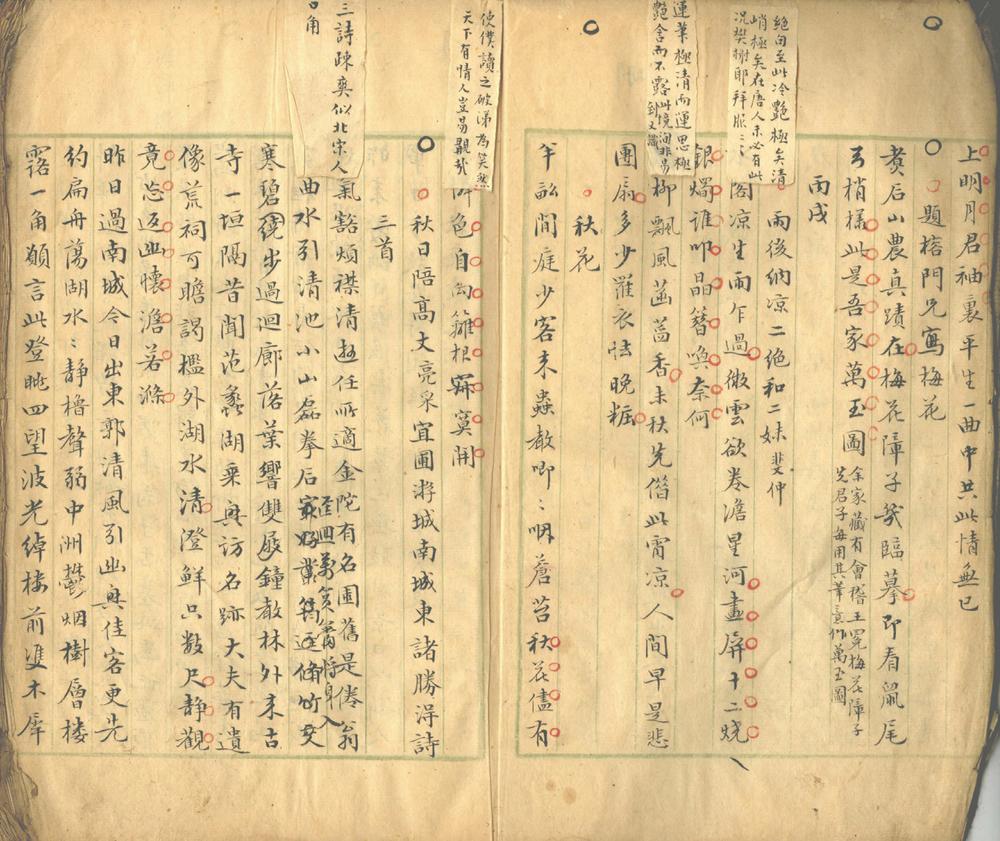 上明月君袖裏平生一曲中共此情無已
題榕門兄寫梅花
煑后山農真蹟在梅花障子幾臨摹即看鼠尾
弓梢樣此是吾家萬玉圖
余家藏有會稽王冕梅花障子
先君子每用其筆意作萬玉圖
丙戌
雨後納凉二絕和二妹斐仲
閣凉生雨乍過微雲欲卷澹星河畫屏十二燒
銀燭誰叩晶簪喚奈何
柳飄風菡萏香未秋先借此宵凉人間早是悲
團扇多少羅衣怯晚粧
秋花
年訟閒庭少客来蟲敎唧〻咽蒼苔秋花儘有
絕句至此冷艷極矣清
峭極矣在唐人亦必有此
况樊榭耶拜服〻〻
運筆極清而運思極
艷含而不露此境洵非易
到又識
使僕讀之破涕為笑然
天下有情人豈易覯哉
色自勾籬根寂寞開
秋日陪高大亮采宜圃游城南城東諸勝淂詩
三首
三詩疎奕似北宋人
口角
氣豁煩襟清遊任所適金陀有名圃舊是倦翁
曲水引清池小山磊拳石
笻逕脩竹交
寒碧繞步過迴廊落葉響雙屐鐘敎林外来古
寺一垣隔昔聞范蠡湖乗興訪名跡大夫有遺
像荒祠可瞻謁檻外湖水清澄鮮只数尺静觀
竟忘返幽懷澹若滌
昨日過南城今日出東郭清風引幽興佳客更先
約扁舟蕩湖水〻静櫓聲弱中洲鬱烟樹層樓
露一角願言此登眺四望波光綽樓前雙木犀